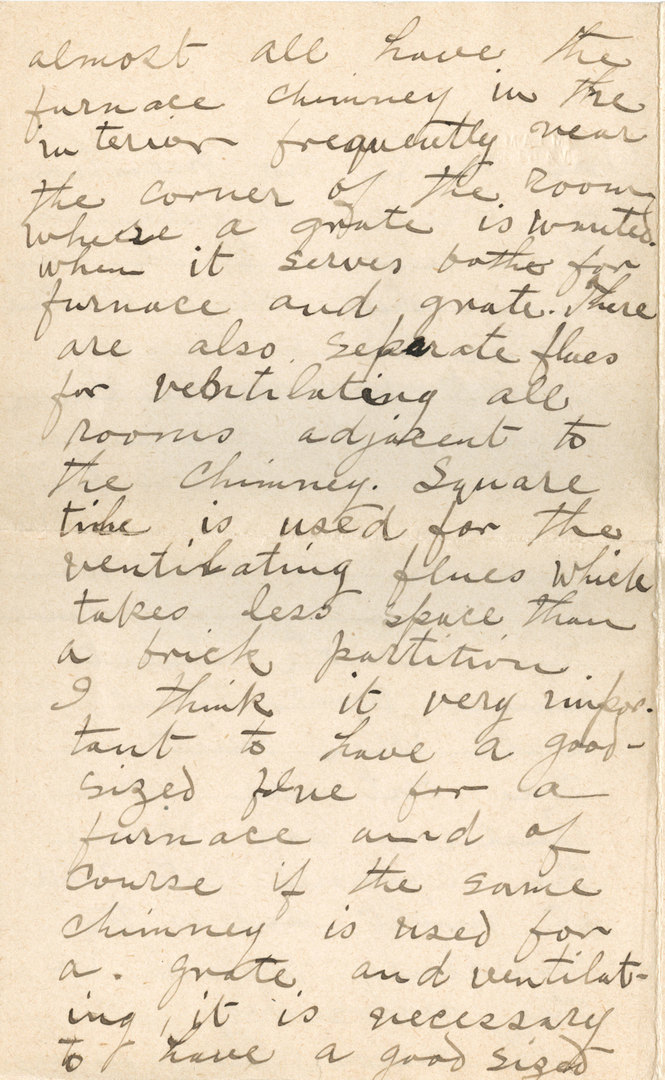 almost all have the
furnace chimney in the
interior frequently near
the corner of the room
where a grate is wanted.
when it serves bothe for
furnace and grate. There
are also separate flues
for ventilating all
rooms adjacent to
the chimney. Square
tile is used for the
ventilating flues which
takes less space than
a brick partition
I think it very impor-
tant to have a good-
sized flue for a
furnace and of
course if the same
chimney is used for
a. grate and ventilat-
ing, it is necessary
to have a good sized